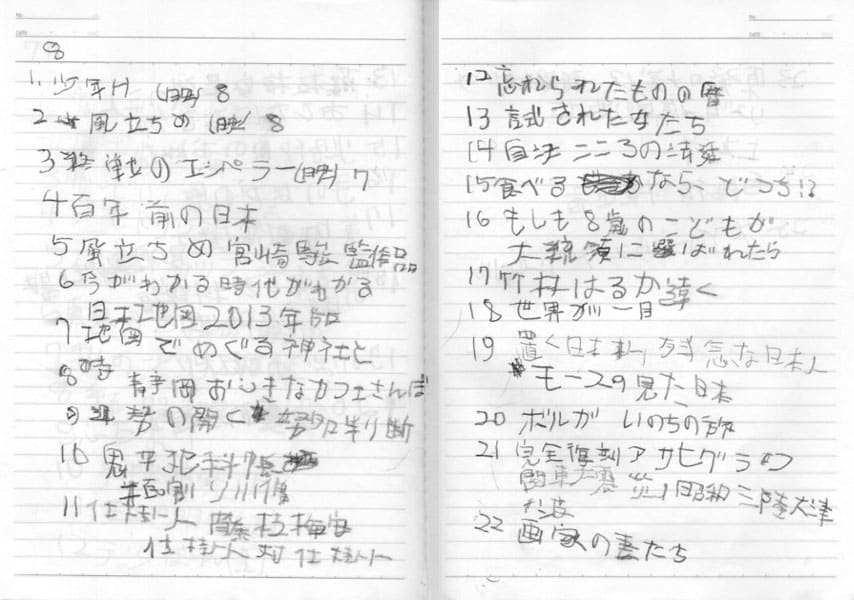 8
1. 少年H (映) 8
2 風立ちぬ (映) 8
3 終戦のエンペラー(映) 7
4 百年前の日本
5 風立ちぬ 宮崎駿監作品
6 今がわかる時代がわかる
日本地図2013年版
7 地図でめぐる神社と
8 静岡おしきなカフェさんぽ
9 努の開く
10 鬼平犯科帳
11 仕掛人 藤枝梅安
仕掛人対仕掛人
12 忘れられたものの暦
13 試された女たち
14 自法こころの法
15 食べるなら、どっち!?
16 もしも8歳のこどもが
大統領に選ばれたら
17 竹林はるか遠く
18 世界が一目
19 置く日本 急な日本人
モースの見た日本
20 ボルガ いのちの旅
21 完全復刻アサヒグラフ
関東大震災 昭和三陸大津
波
22 画家の妻たち